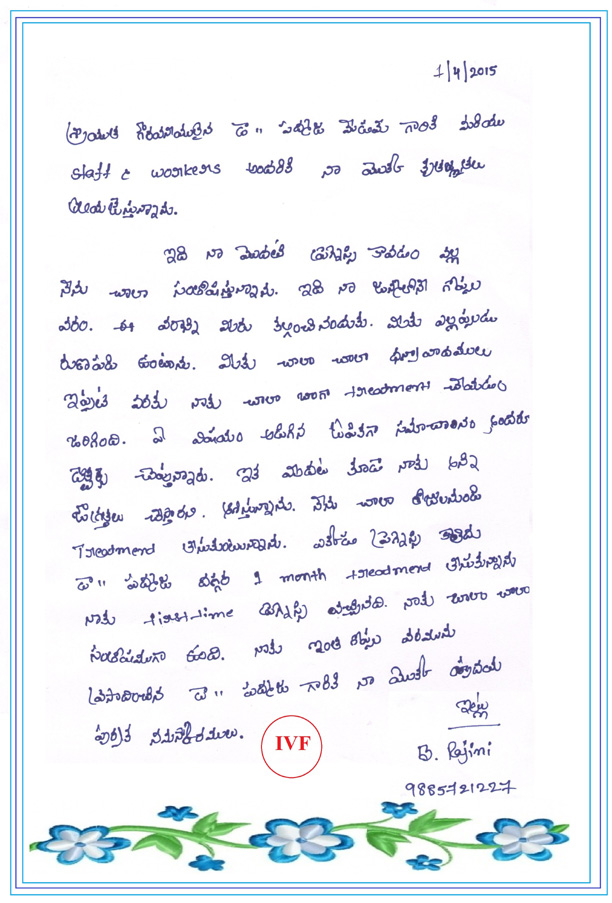 1/4/2015
శ్రీయుత గౌరవనీయులైన డా" పద్మజ మేడమ్ గారికి మరియు
staff & workers అందరికి నా యొక్క కృతజ్ఞతలు
తెలియచేస్తున్నాను.
ఇది నా మొదటి ప్రెగ్నెన్సి కావడం వల్ల
నేను చాలా సంతోషిస్తున్నాను. ఇది నా జీవితానికి గొప్ప
వరం. ఈ వరాన్ని మీరు కల్గించినందుకు. మీకు ఎల్లప్పుడు
రుణపడి ఉంటాను. మీకు చాలా చాలా ధన్యవాదములు
ఇప్పటి వరకు నాకు చాలా బాగా treatment చేయడం
జరిగింది. ఏ విషయం అడిగిన ఓపికగా సమాచారం అందరు
చెప్తున్నారు. ఇక ముందు కూడా నాకు అన్ని
జాగ్రత్తలు చేస్తారని. ఆశిస్తున్నాను. నేను చాలా రోజులనుండి
Treatment తీసుకుంటున్నాను. ఎక్కడ ప్రెగ్నెన్సి కాలేదు
డా" పద్మజ దగ్గర 1 month treatment తీసుకున్నాను
నాకు first time ప్రెగ్నెన్సి వచ్చినది. నాకు చాలా చాలా
సంతోషముగా ఉంది. నాకు ఇంత గొప్ప వరమును
ప్రసాదించిన డా" పద్మజ గారికి నా యొక్క హృదయ
పూర్వక నమస్కారములు.
ఇట్లు
IVF
B. Rajini
9885721227